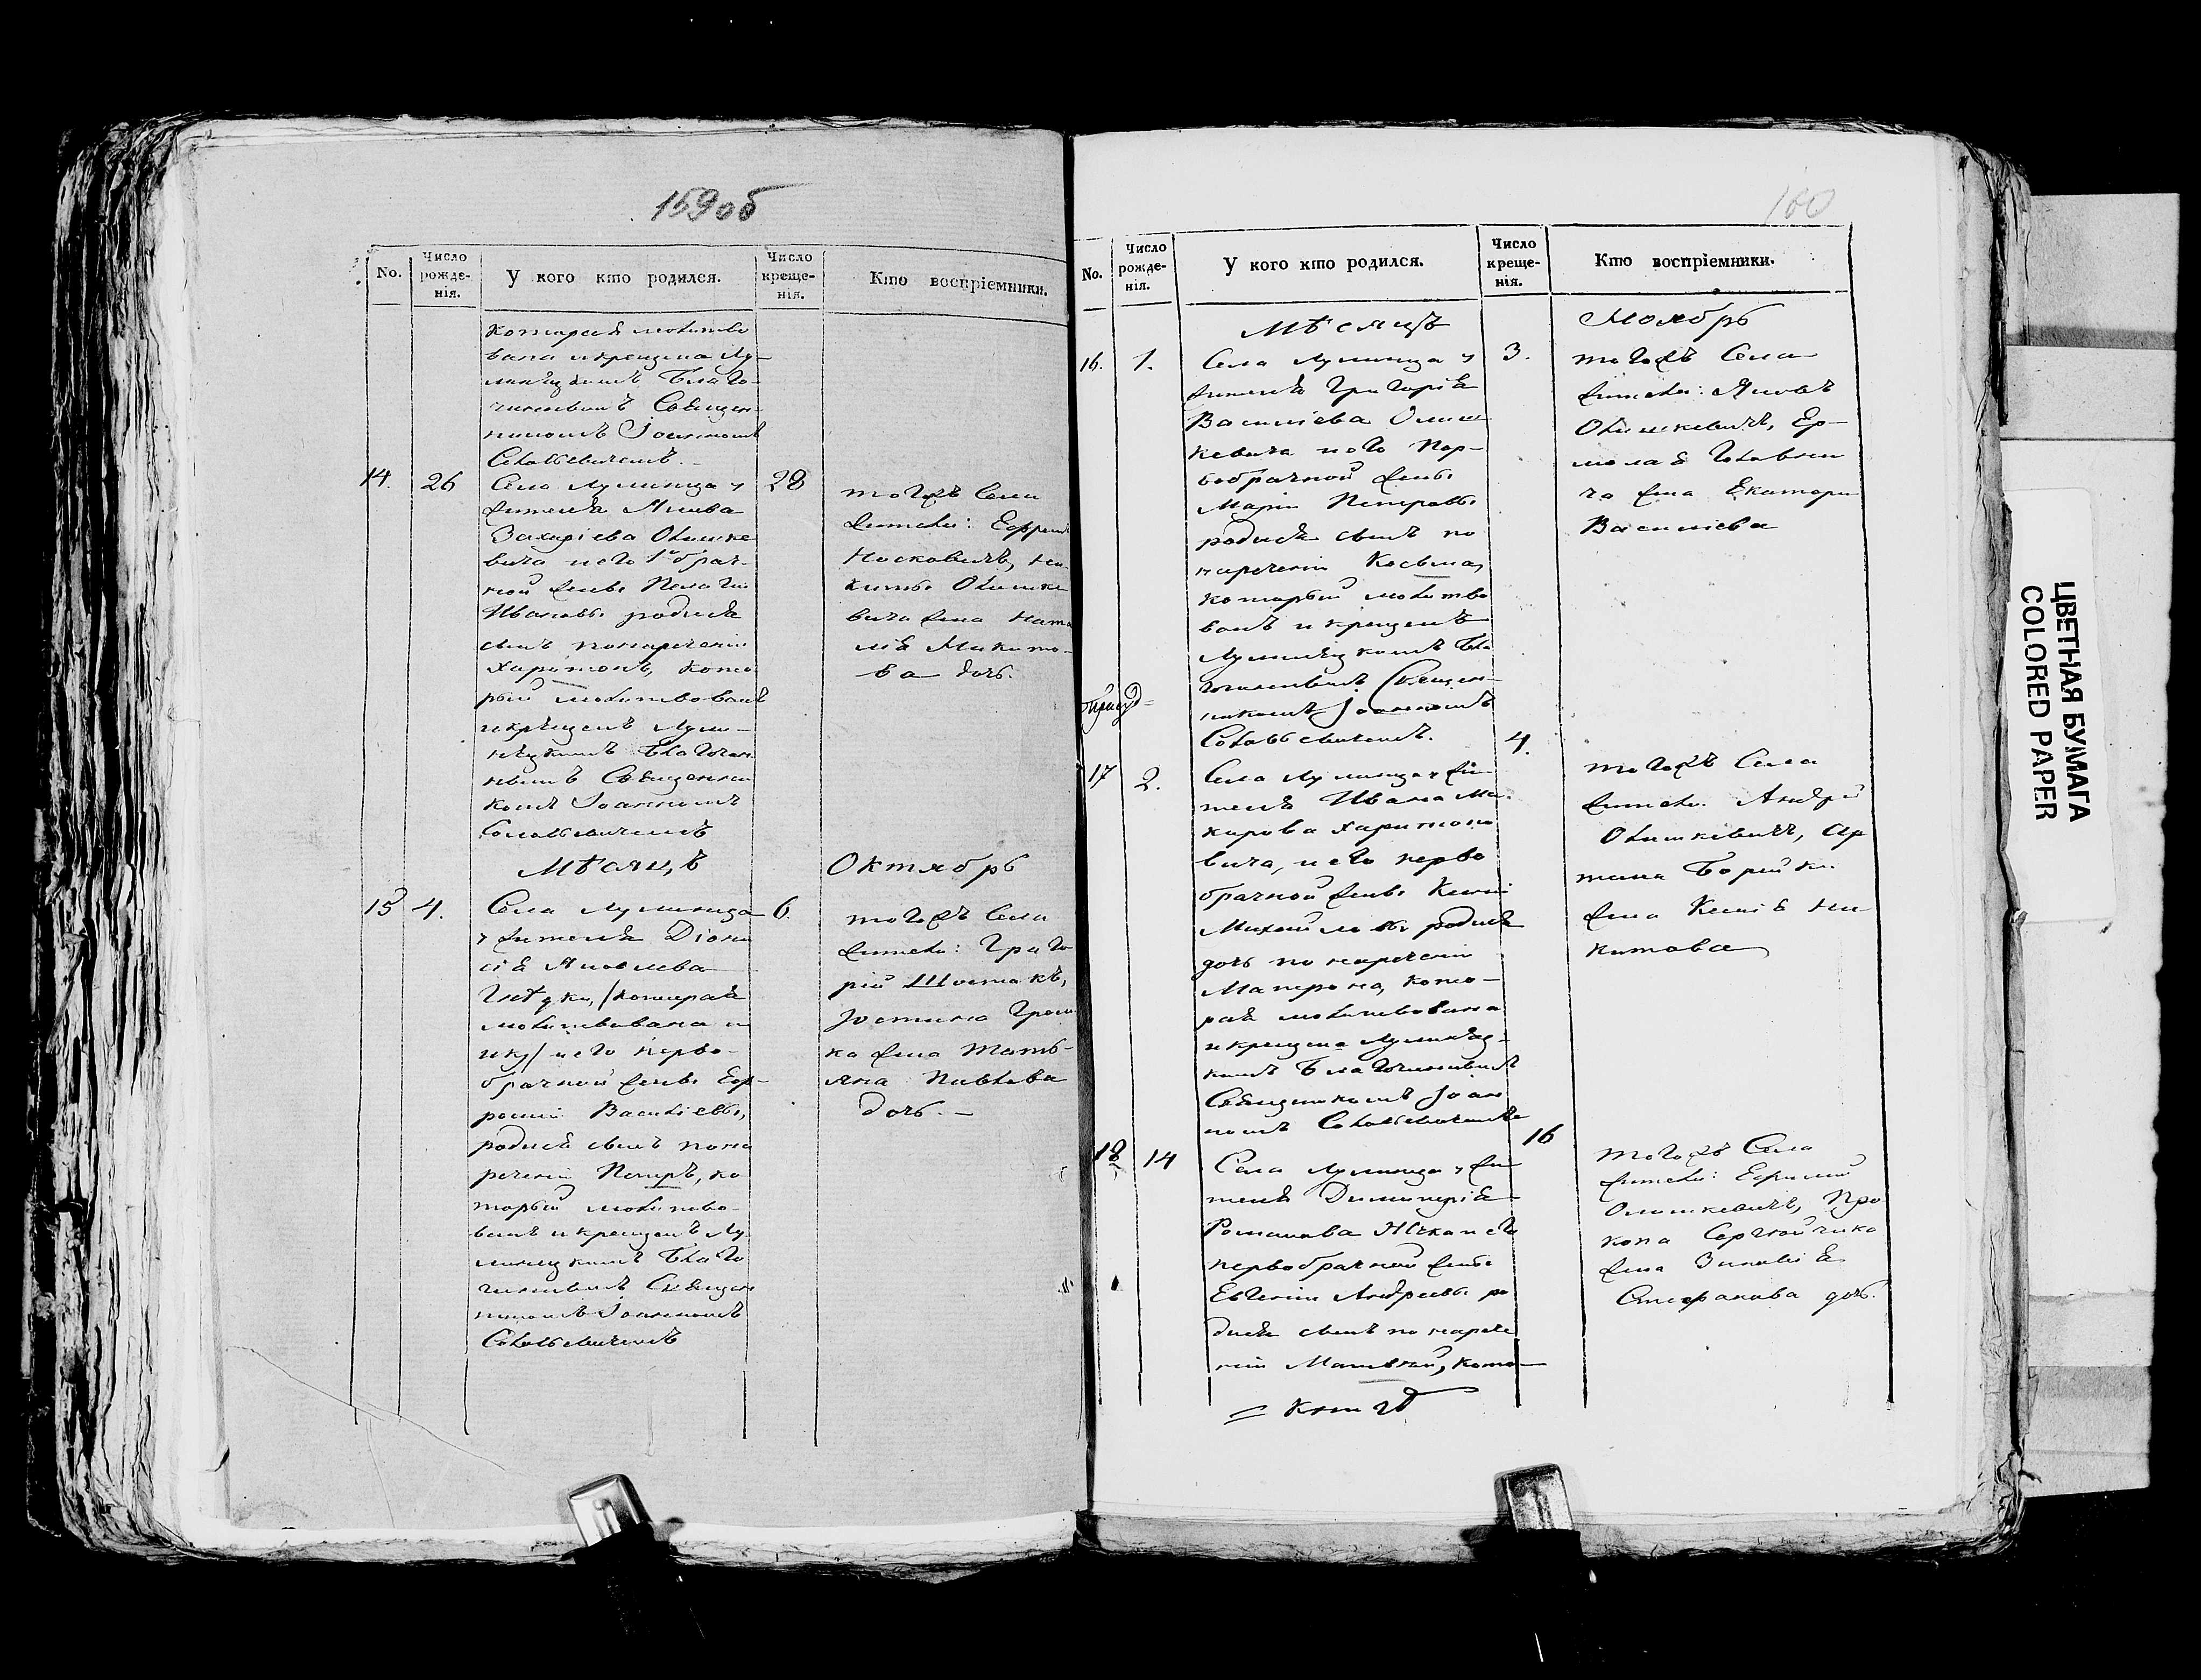 159об
No.
Число рожде-нія.
У кого кто родился.
Число креще-нія.
Кто воспріемники.
которая молитво
вана и крещена Лу-
нинецкимъ Благо-
чиннымъ Священ-
никомъ Іоанномъ
Соловьевичемъ.-
14. 26 28
Села Лунинца
жителя Якова
Захаріева Олишке
вича и его 1о брач-
ной жены Пелагіи
Ивановы родился
сынъ по нареченіи
Харитонъ, кото
рый молитвованъ
и крещенъ Луни-
нецкимъ Благочин
нымъ Священни
комъ Іоанномъ
Соловьевичемъ
тогожъ Села
жители: Ефремъ
Носковичъ, Ни-
киты Олишке
вича жена Ната
лія Никито-
ва дочь.
Мѣсяцъ Октябрь
15 4. 6.
Села Лунинца
жителя Діони
сія Яковлева
/которая
молитвована и
и кр/ и его перво-
брачной жены Евф-
росиніи Василіевы,
родился сынъ по на
реченіи Петръ, ко
торый молитво-
ванъ и крещенъ Лу
нинецкимъ Благо
чиннымъ Священ
никомъ Іоанномъ
Соловьевичемъ
тогожъ Села
жители: Григо
рій Шостакъ,
Іустина Гром
ка жена Тать-
яна Павлова
дочь.-
160
No.
Число рожде-нія.
У кого кто родился.
Число креще-нія.
Кто воспріемники.
Мѣсяцъ Ноябрь
16. 1. 3.
Села Лунинца
жителя Григорія
Василіева Олиш
кевича и его пер-
вобрачной жены
Маріи Петровы
родился сынъ по
нареченіи Косьма,
который молитво
ванъ и крещенъ
Лунинецкимъ Бла
гочиннымъ Священ-
никомъ Іоанномъ
Соловьевичемъ.
тогожъ Села
жители: Яковъ
Олишкевичъ, Ер-
молая Головни
ча жена Екатери
Василіева
17 2. 4.
Села Лунинца жи
теля Ивана Ма-
карова Харитоно
вича, и его перво
брачной жены Ксеніи
Михайловы родилась
дочь по нареченіи
Матрона, кото-
рая молитвована
и крещена Лунинец-
кимъ Благочиннымъ
Священникомъ Іоан
номъ Соловьевичемъ
тогожъ Села
жители. Андрей
Олишкевичъ, Ар
тема Борейки
жена Ксенія Ни-
китова
18 14 16
Села Лунинца жи
теля Димитрія
Романова и его
первобрачной жены
Евгеніи Андреевы ро
дился сынъ по нарече
ніи Матвей, кото-
тогожъ Села
жители: Ефимій
Олишкевичъ, Про
копа Сергейчика
жена Зиновія
Стефанова дочь.
ЦВЕТНАЯ БУМАГА
COLORED PAPER